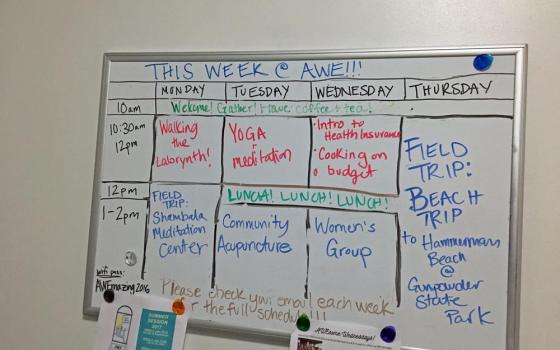 THIS WEEK @ AWE!!!
MONDAY TUESDAY WEDNESDAY THURSDAY
10am Welcome! Gather! Have coffee + tea!
10:30am
12pm
Walking
the
Laborynth!
YOGA
+
meditation
• Intro to
Health Insurance
• Cooking on
a budget
FIELD
TRIP:
BEACH
TRIP
to Hammerman
Beach
@
Gunpowder
State
Park
12pm LUNCH! LUNCH! LUNCH!
1-2pm
FIELD
TRIP:
Shambala
Meditation
Center
Community
Acupuncture
Women's
Group
wifi pass:
AWEmazing2016
Please check your email each week
for the full schedule!!!
SUMMER
SESSION
2017
AWEsome Wednesdays!